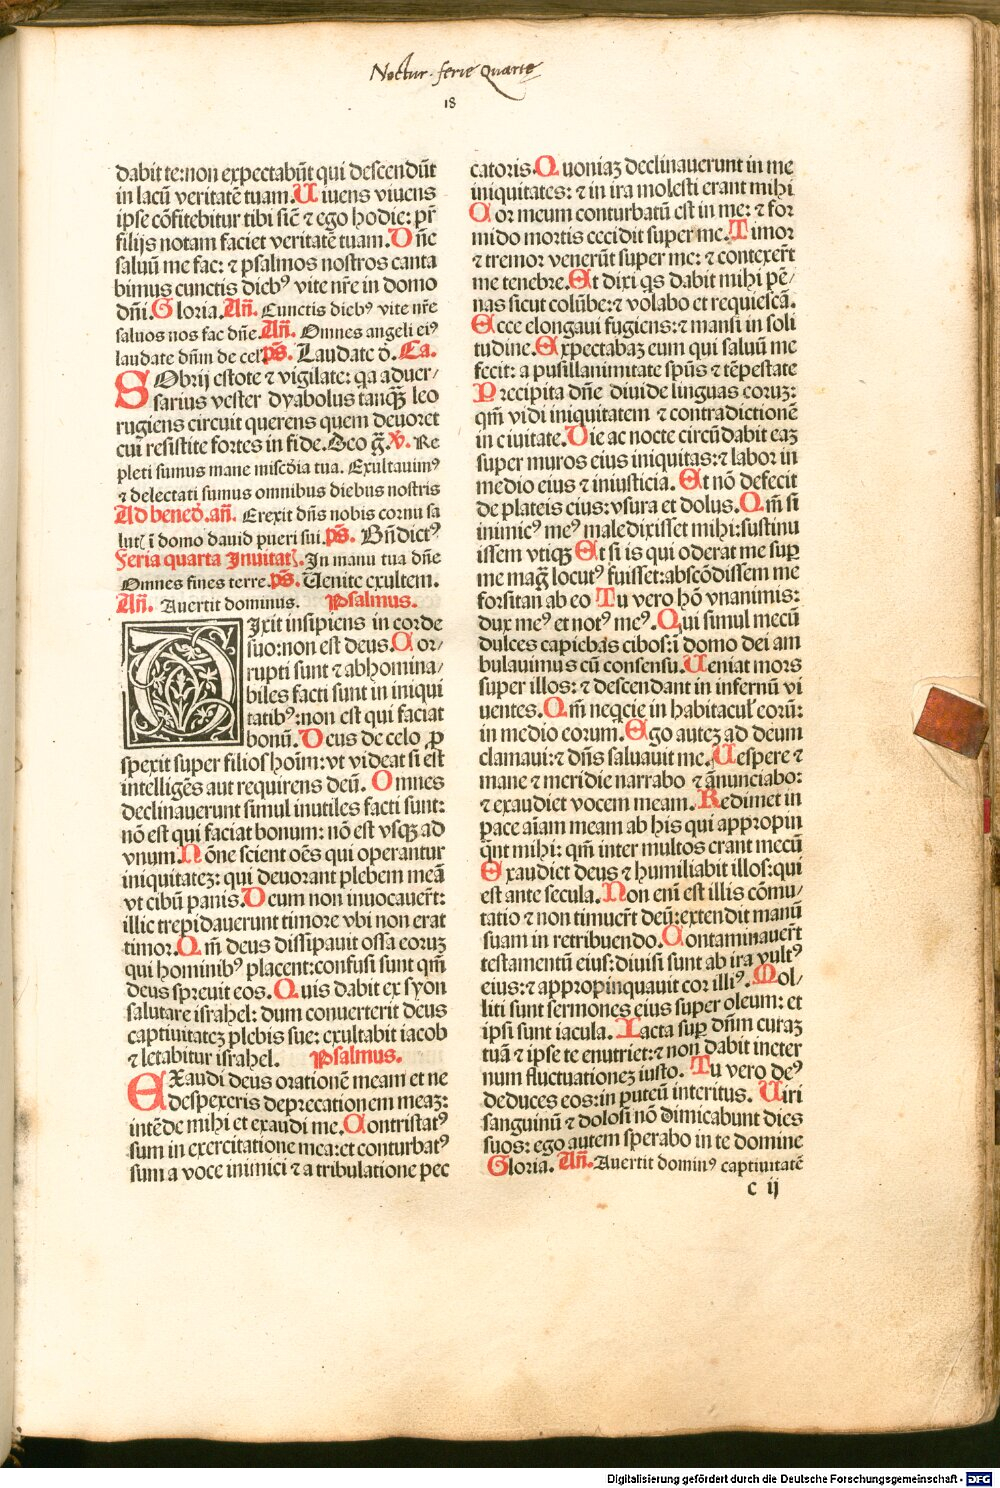 Noctur. ferie Quarte
18
dabit te: non expectabūt qui descendūt
in lacū veritatē tuam. Viuens viuens
ipse cōfitebitur tibi sic̄ ⁊ ego hodie: pr̄
filijs notam faciet veritatē tuam. Dn̄e
saluū me fac: ⁊ psalmos nostros canta
bimus cunctis diebꝰ vite nr̄e in domo
dn̄i. Gloria. Añ. Cunctis diebꝰ vite nr̄e
saluos nos fac dn̄e. Añ. Omnes angeli eiꝰ
laudate dn̄m de cel. ps̄. Laudate d. Ca.
SObrij estote ⁊ vigilate: qa aduer/
sarius vester dyabolus tanqꝫ leo
rugiens circuit querens quem deuoret
cui resistite fortes in fide. Deo gr̄. V. Re
pleti sumus mane misc̄dia tua. Exultauimꝰ
⁊ delectati sumus omnibus diebus nostris
Ad bened̄. añ. Erexit dn̄s nobis cornu sa
lutꝭ ī domo dauid pueri sui. ps̄. Bn̄dictꝰ
Feria quarta Inuitatꝭ. In manu tua dn̄e
Omnes fines terre. ps̄. Venite exultem.
Añ. Auertit dominus. Psalmus.
DIxit insipiens in corde
suo: non est deus. Cor/
rupti sunt ⁊ abhomina/
biles facti sunt in iniqui
tatibꝰ: non est qui faciat
bonū. Deus de celo ꝓ
spexit super filios hoīm: vt videat si est
intelligēs aut requirens deū. Omnes
declinauerunt simul inutiles facti sunt:
nō est qui faciat bonum: nō est vsqꝫ ad
vnum. Nōne scient oēs qui operantur
iniquitatez: qui deuorant plebem meā
vt cibū panis. Deum non inuocauer̄t:
illic trepidauerunt timore vbi non erat
timor. Qm̄ deus dissipauit ossa eoruz
qui hominibꝰ placent: confusi sunt qm̄
deus spreuit eos. Quis dabit ex syon
salutare israhel: dum conuerterit deus
captiuitatez plebis sue: exultabit iacob
⁊ letabitur israhel. Psalmus.
EXaudi deus orationē meam et ne
despexeris deprecationem meaz:
intēde mihi et exaudi me. Contristatꝰ
sum in exercitatione mea: et conturbatꝰ
sum a voce inimici ⁊ a tribulatione pec
catoris. Quoniaz declinauerunt in me
iniquitates: ⁊ in ira molesti erant mihi
Cor meum conturbatū est in me: ⁊ for
mido mortis cecidit super me. Timor
⁊ tremor venerūt super me: ⁊ contexer̄t
me tenebre. Et dixi qs dabit mihi pē/
nas sicut colūbe: ⁊ volabo et requiescā.
Ecce elongaui fugiens: ⁊ mansi in soli
tudine. Expectabaz eum qui saluū me
fecit: a pusillanimitate spūs ⁊ tēpestate
Precipita dn̄e diuide linguas coruz:
qm̄ vidi iniquitatem ⁊ contradictionē
in ciuitate. Die ac nocte circūdabit eaz
super muros eius iniquitas: ⁊ labor in
medio eius ⁊ iniusticia. Et nō defecit
de plateis eius: vsura et dolus. Qm̄ si
inimicꝰ meꝰ maledixisset mihi: sustinu
issem vtiqꝫ Et si is qui oderat me suꝑ
me maḡ locutꝰ fuisset: abscōdissem me
forsitan ab eo Tu vero hō vnanimis:
dux meꝰ et notꝰ meꝰ. Qui simul mecū
dulces capiebas cibos: ī domo dei am
bulauimus cū consensu. Veniat mors
super illos: ⁊ descendant in infernū vi
uentes. Qm̄ neqcie in habitacul̓ eorū:
in medio eorum. Ego autez ad deum
clamaui: ⁊ dn̄s saluauit me. Vespere ⁊
mane ⁊ meridie narrabo ⁊ ānunciabo:
⁊ exaudiet vocem meam. Redimet in
pace aīam meam ab his qui appropin
qn̄t mihi: qm̄ inter multos erant mecū
Exaudiet deus ⁊ humiliabit illos: qui
est ante secula. Non enī est illis cōmu/
tatio ⁊ non timuer̄t deū: extendit manū
suam in retribuendo. Contaminauer̄t
testamentū eius: diuisi sunt ab ira vultꝰ
eius: ⁊ appropinquauit cor illiꝰ. Mol/
liti sunt sermones eius super oleum: et
ipsi sunt iacula. Iacta suꝑ dn̄m curaz
tuā ⁊ ipse te enutriet: ⁊ non dabit in eter
num fluctuationez iusto. Tu vero deꝰ
deduces eos: in puteū interitus. Viri
sanguinū ⁊ dolosi nō dimicabunt dies
suos: ego autem sperabo in te domine
Gloria. Añ. Auertit dominꝰ captiuitatē
c ij
Digitalisierung gefördert durch die Deutsche Forschungsgemeinschaft - DFG